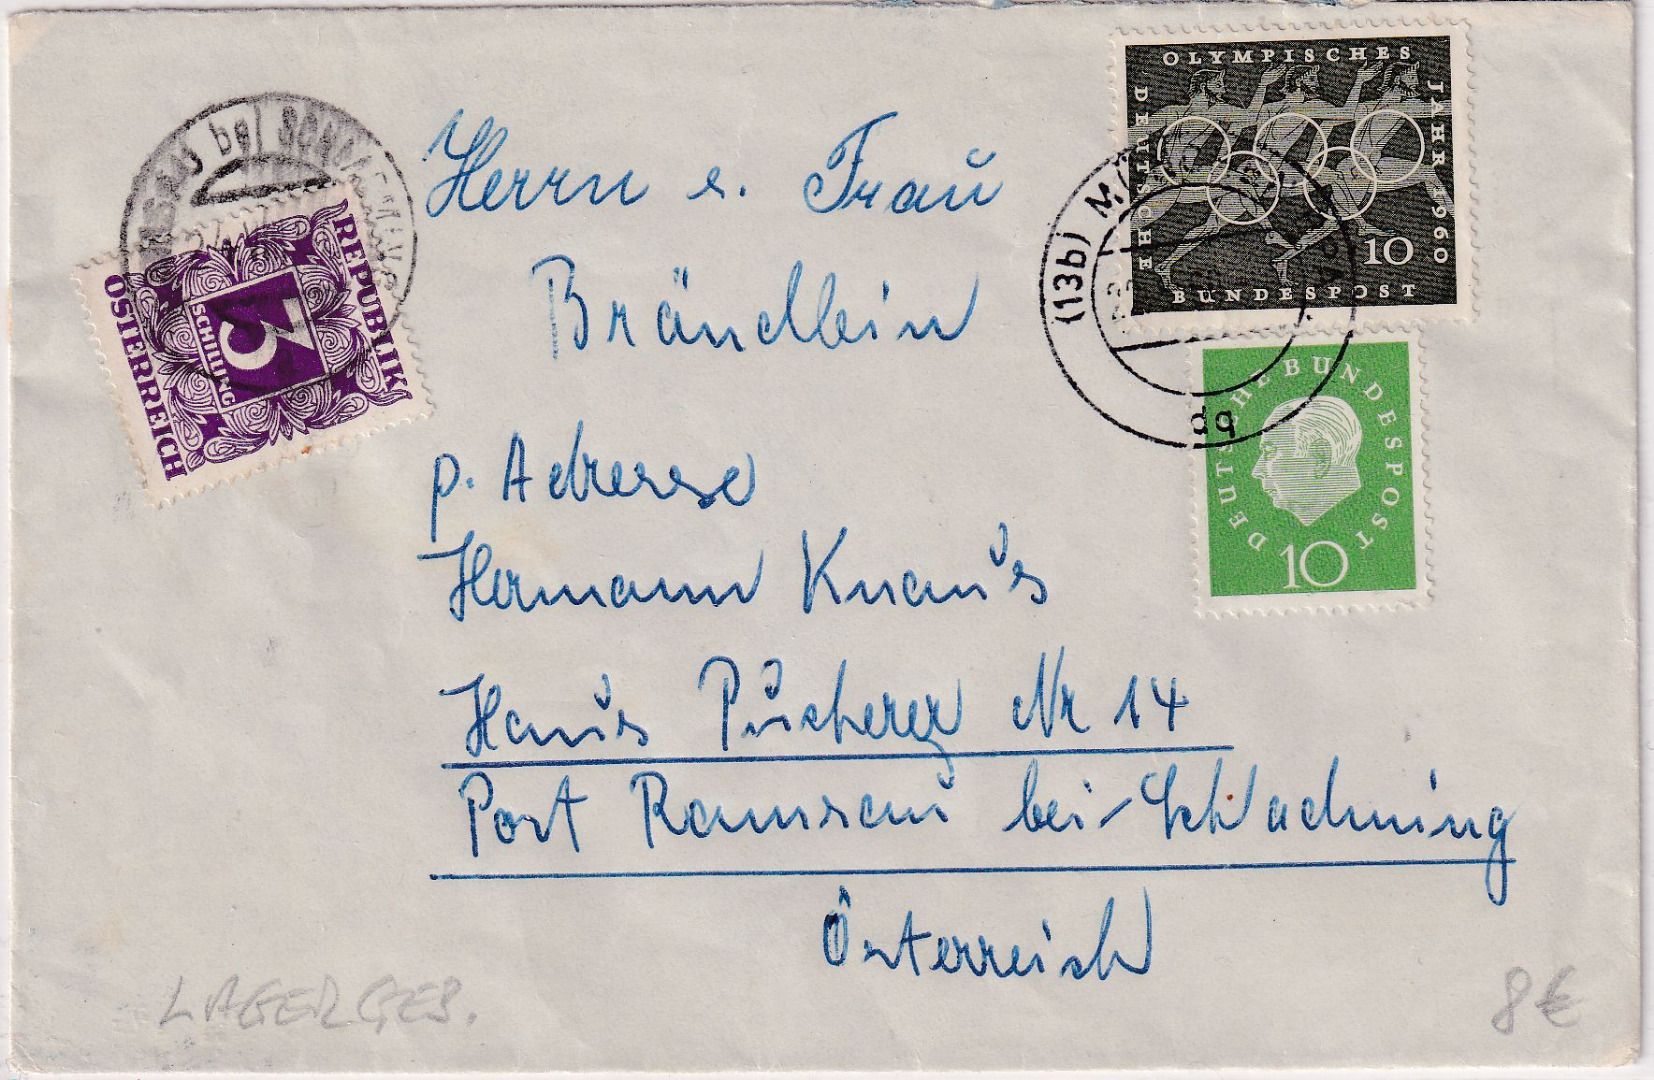 bei
REPUBLIK
3
SCHILLING
ÖSTERREICH
OLYMPISCHES
JAHR 1960
DEUTSCHE
10
BUNDESPOST
(13b)
dq
DEUTSCHE BUNDESPOST
10
Herrn u. Frau
Brändlein
p. Adresse
Hermann Knaus
Haus Pücherer Nr 14
Post Ramsau bei Schladming
Österreich
LAGERGEB.
8€